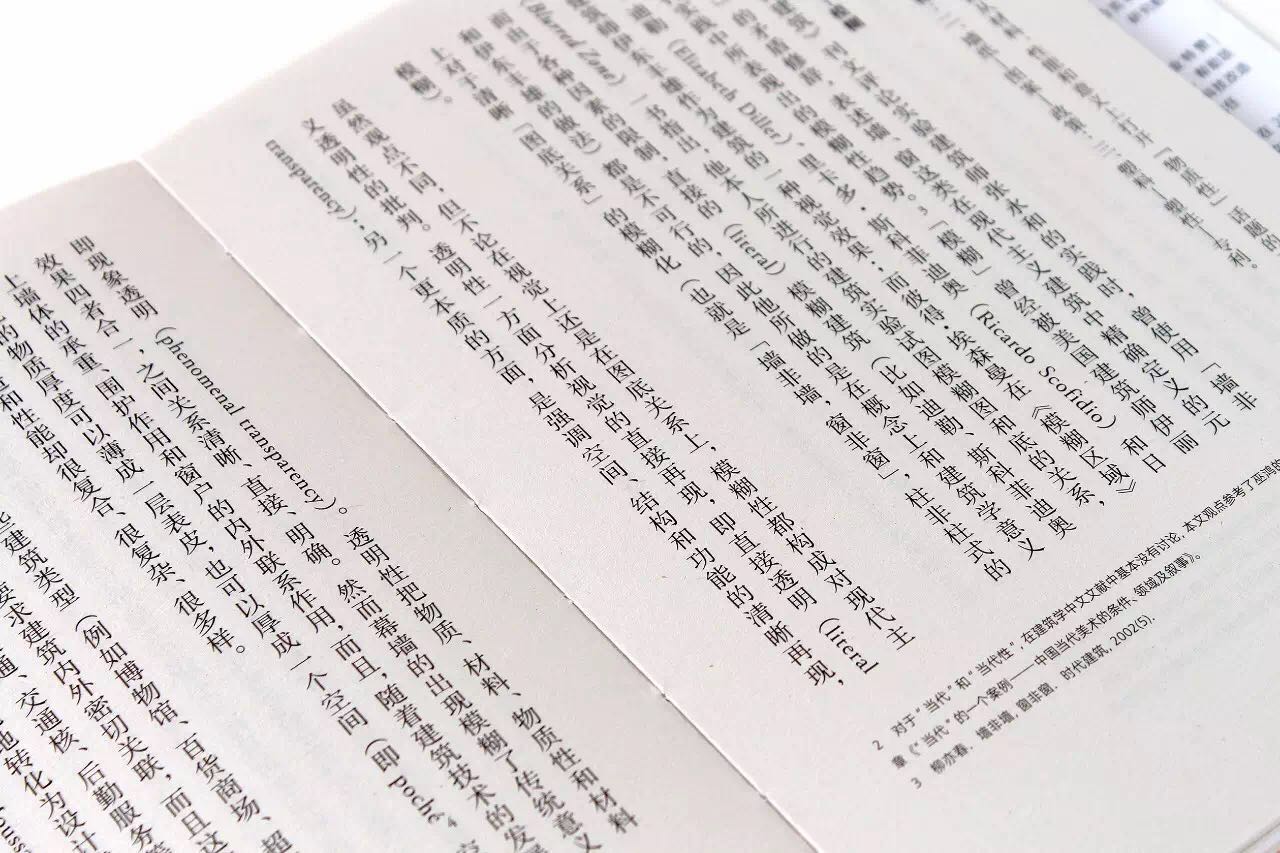 材料、性能和意义上打开「物质性」话题的
二、墙纸—图案—政期。三、塑料—塑性—专利。
建筑》刊文评论实验建筑师张永和的实践时，曾使用「墙非
的矛盾修辞，表述墙、窗这类在现代主义建筑中精确定义的元
实践中所表现出的模糊性趋势。3「模糊」曾经被美国建筑师伊丽
迪勒 (Elizabeth Diller)、里卡多·斯科菲迪奥 (Ricardo Scofidio) 和日
建筑师伊东丰雄作为建筑的一种视觉效果；而彼得·埃森曼在《模糊区域》
(Blurred Zones) 一书指出，他本人所进行的建筑实验试图模糊图和底的关系，
而由于各种因素的限制，直接的 (literal) 模糊建筑 (比如迪勒、斯科菲迪奥
和伊东丰雄的做法) 都是不可行的，因此他所做的是在概念上和建筑学意义
上对于清晰「图底关系」的模糊化 (也就是「墙非墙，窗非窗」，柱非柱式的
模糊)。
虽然观点不同，但不论在视觉上还是在图底关系上，模糊性都构成对现代主
义透明性的批判。透明性一方面分析视觉的直接再现，即直接透明 (literal
transparency)；另一个更本质的方面，是强调空间、结构和功能的清晰再现，
2 对于“当代”和“当代性”，在建筑学中文文献中基本没有讨论，本文观点参考了巫鸿的
章《“当代”的一个案例——中国当代美术的条件、领域及叙事》。
3 柳亦春．墙非墙，窗非窗．时代建筑，2002(5).
即现象透明 (Phenomenal transparency)。透明性把物质、材料、物质性和材料
效果四者合一，之间关系清晰、直接、明确。然而幕墙的出现模糊了传统意义
上墙体的承重、围护作用和窗户的内外联系作用，而且，随着建筑技术的发
的物质厚度可以薄成一层表皮，也可以厚成一个空间 (即 Poche,4
和性能却很复合、很复杂、很多样。
些建筑类型 (例如博物馆、百货商场、超
要求建筑内外密切关联，而且这
通、交通核、后勤服务等
地转化为设计